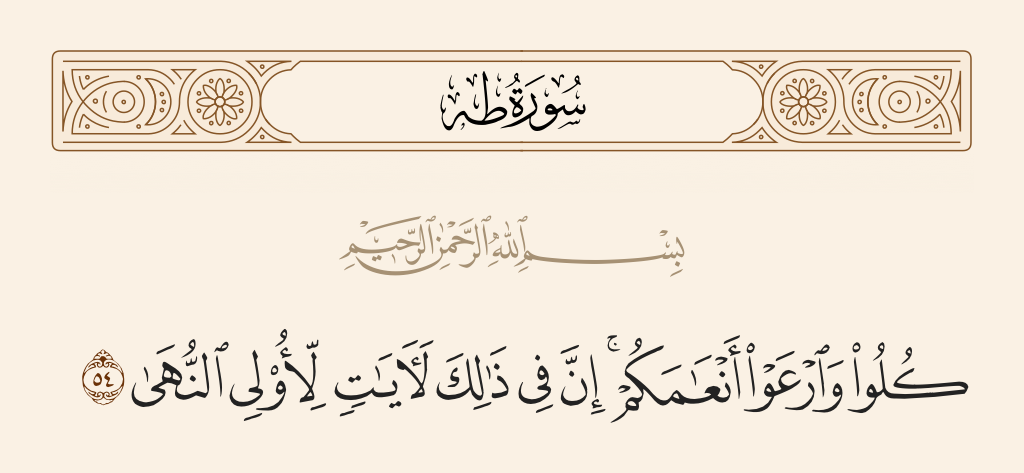 سُورَةُ طه
بِسْمِ ٱللَّهِ ٱلرَّحْمَٰنِ ٱلرَّحِيمِ
كُلُوا۟ وَٱرْعَوْا۟ أَنْعَٰمَكُمْ ۚ إِنَّ فِى ذَٰلِكَ لَءَايَٰتٍ لِّأُو۟لِى ٱلنُّهَىٰ ٥٤